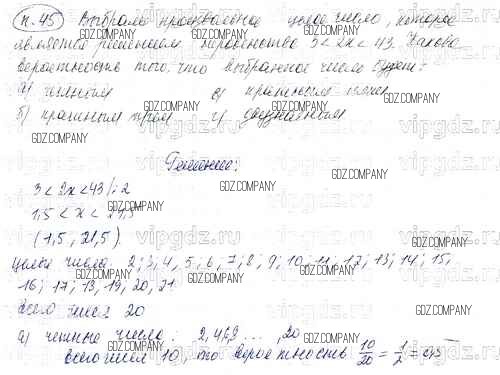 п. 45) Выбрали произвольное целое число, которое
является решением неравенства 3 < 2x < 43. Какова
вероятность того, что выбранное число будет:
а) четным в) кратным
б) кратным трем г) двузначным
Решение:
3 < 2x < 43 /: 2
1,5 < x < 21,5
(1,5; 21,5).
целые числа: 2; 3, 4, 5; 6, 7, 8, 9; 10, 11; 12; 13; 14; 15;
16; 17; 18, 19, 20, 21
всего чисел 20
а) четные числа: 2, 4, ..., 20
всего чисел 10, то вероятность 10/20 = 1/2 = 0,5
GDZ.COMPANY
vipgdz.ru